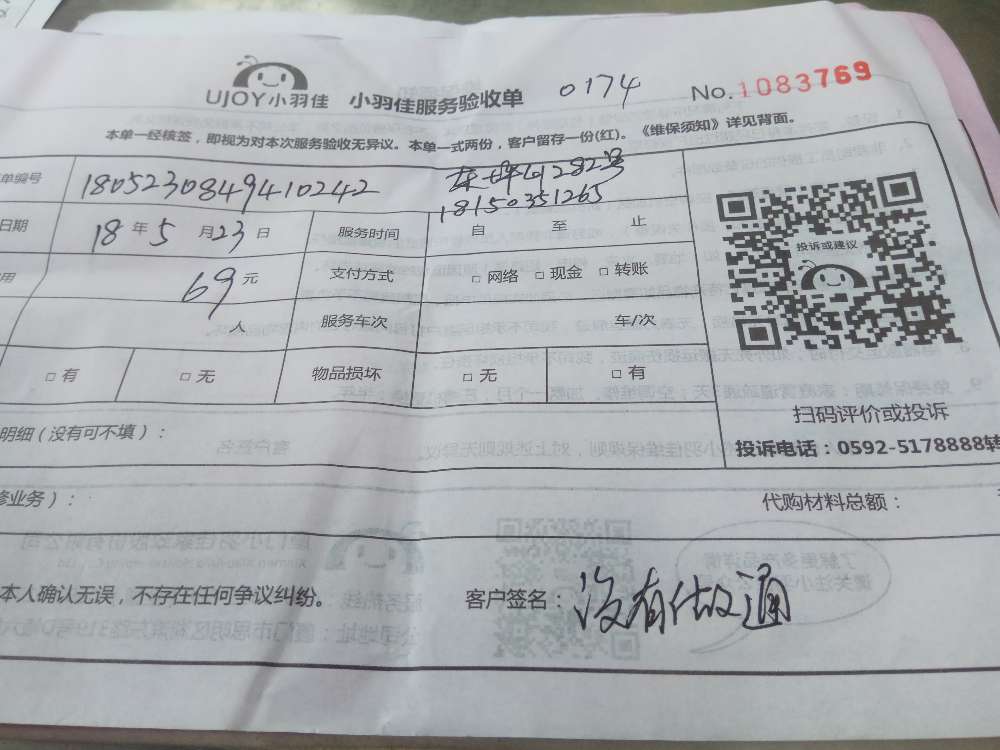 UJOY小羽佳 小羽佳服务验收单 0174 No.1083769
本单一经核签，即视为对本次服务验收无异议。本单一式两份，客户留存一份(红)。《维保须知》详见背面。
单编号 1805230849410242 东坪山282号
18150351265
日期 18年5月23日 服务时间 自 至 止
用 69元 支付方式 □网络 □现金 □转账
人 服务车次 车/次
□有 □无 物品损坏 □无 □有
投诉或建议
扫码评价或投诉
投诉电话：0592-5178888转
明细（没有可不填）：
修业务）： 代购材料总额：
本人确认无误，不存在任何争议纠纷。 客户签名：没有做通